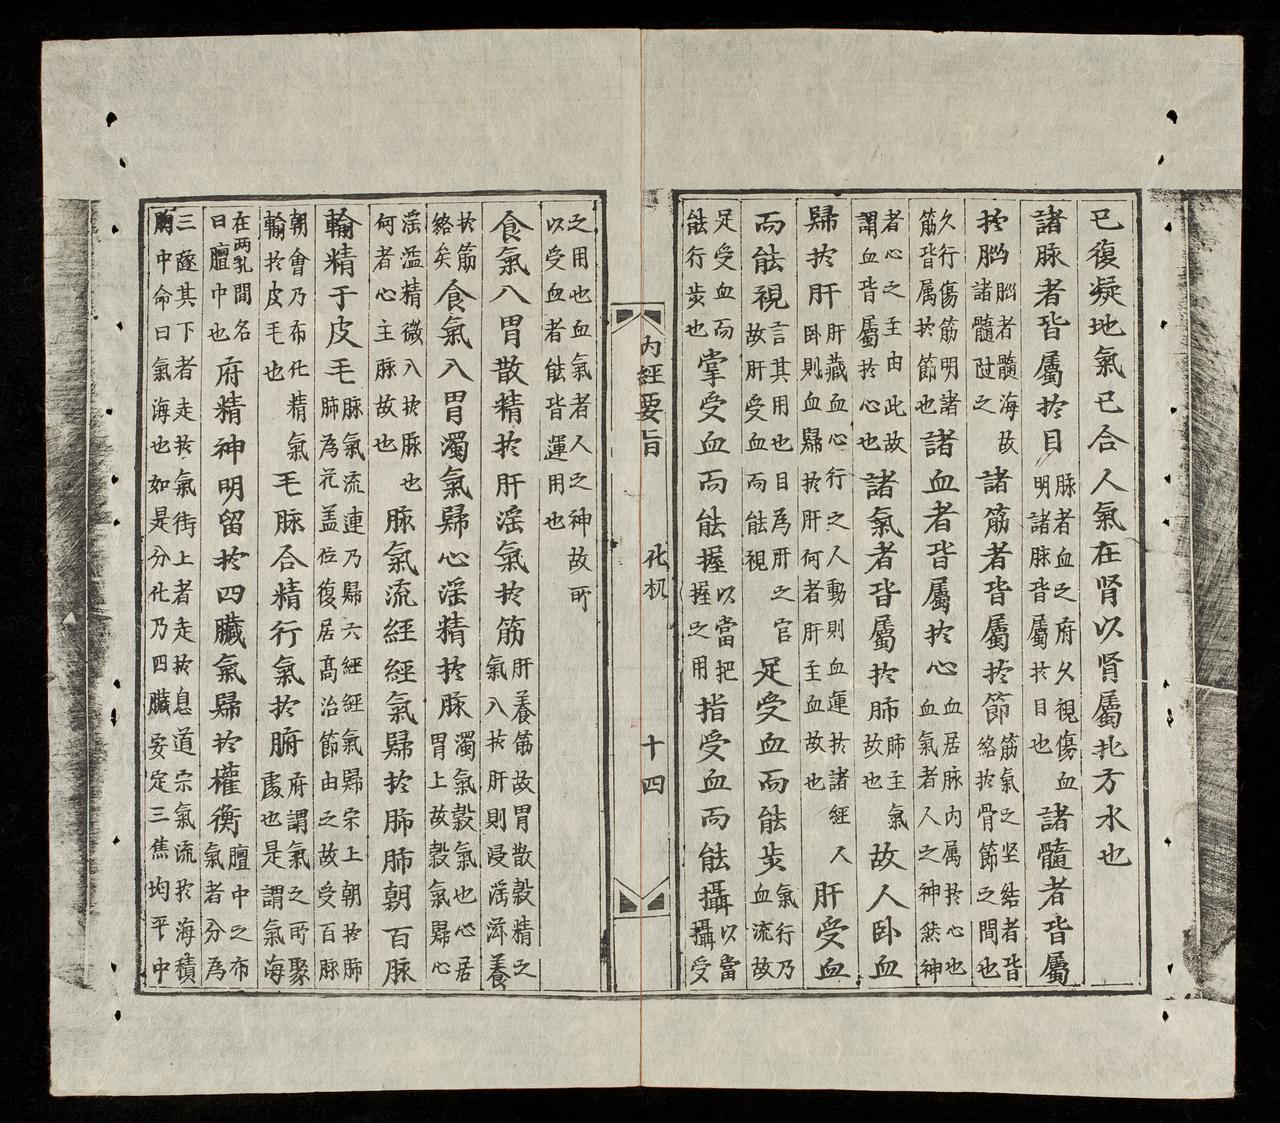 已復凝地氣已合人氣在肾以肾屬北方水也
諸脉者皆屬於目脉者血之府久視傷血明諸脉皆屬於目也諸髓者皆屬
於腦腦者髓海故諸髓陞之諸筋者皆屬於節筋氣之坚結者皆絡於骨節之間也
久行傷筋明諸筋皆属於節也諸血者皆屬於心血居脉内属於心也血氣者人之神然神
者心之主由此故謂血皆屬於心也諸氣者皆屬於肺肺主氣故也故人卧血
歸於肝肝藏血心行之人動則血運於諸經人卧則血歸於肝何者肝主血故也肝受血
而能視言其用也目為肝之官故肝受血而能視足受血而能步氣行乃血流故
足受血而能行步也掌受血而能握以當把握之用指受血而能攝以當攝受
内經要旨 化机 十四
之用也血氣者人之神故所以受血者能皆運用也
食氣入胃散精於肝淫氣於筋肝養筋故胃散穀精之氣入於肝則浸淫滋養
於筋絡矣食氣入胃濁氣歸心淫精於脉濁氣穀氣也心居胃上故穀氣歸心
淫溢精微入於脉也何者心主脉故也脉氣流經經氣歸於肺肺朝百脉
輸精于皮毛脉氣流連乃歸六經經氣歸宗上朝於肺肺為花盖位復居高治節由之故受百脉
朝會乃布化精氣輸於皮毛也毛脉合精行氣於腑府謂氣之所聚處也是謂氣海
在两乳間名曰膻中也府精神明留於四臟氣歸於權衡膻中之布氣者分為
三隧其下者走於氣街上者走於息道宗氣流於海積胸中命曰氣海也如是分化乃四臟安定三焦均平中